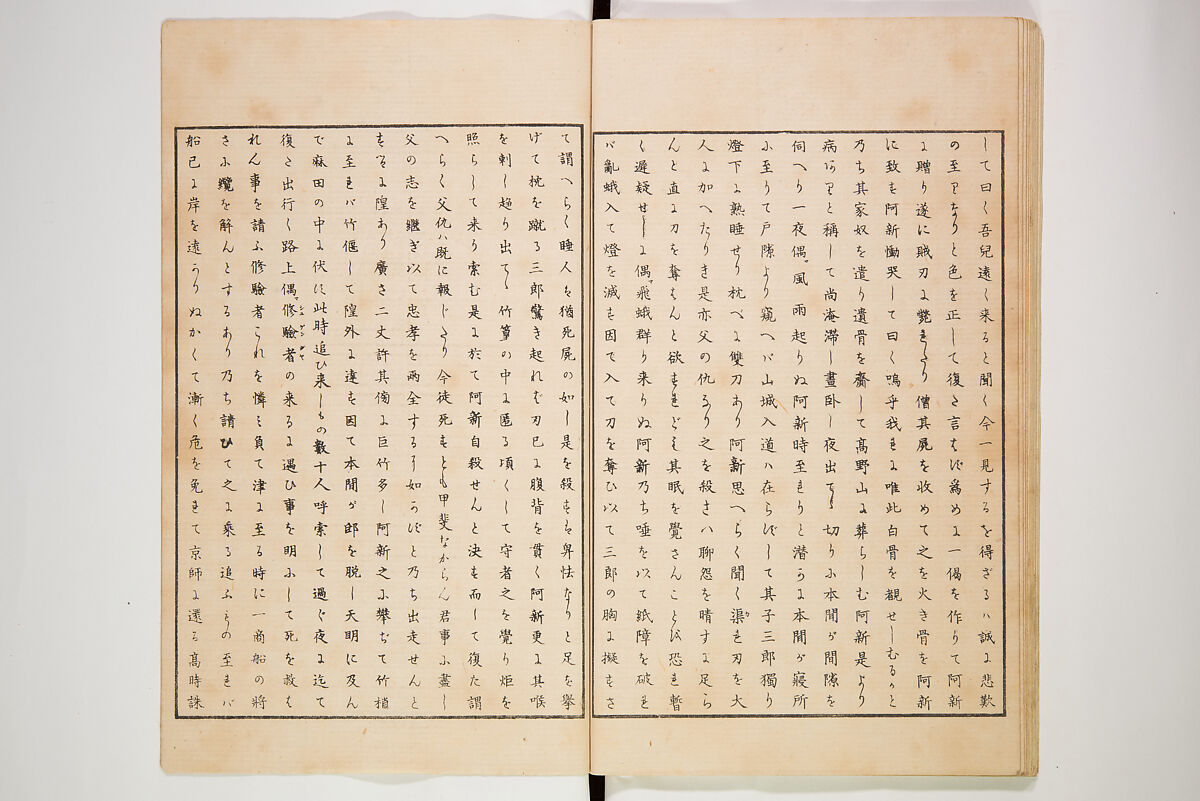 して曰く吾兒遠く来ると聞く今一見するを得ざるハ誠に悲歎
の至りなりと色を正して復た言はず爲めに一偈を作りて阿新
に贈り遂に賊刃に斃れたり僧其屍を收めて之を火き骨を阿新
に致す阿新慟哭して曰く嗚乎我れに唯此白骨を覩せしむるかと
乃ち其家奴を遣り遺骨を齎して髙野山に葬らしむ阿新是より
病ありと稱して尚淹滞し晝卧し夜出でゝ切りに本間が間隙を
伺へり一夜偶〻風雨起りぬ阿新時至れりと潜かに本間が寢所
に至りて戸隙より窺へバ山城入道ハ在らずして其子三郎獨り
燈下に熟睡せり枕べに雙刀あり阿新思へらく聞く渠れ刃を大
人に加へたりき是亦父の仇なり之を殺さハ聊怨を晴すに足ら
んと直に刀を奪はんと欲すれども其眠を覺さんことを恐れ暫
く遲疑せしに偶〻飛蛾群り来りぬ阿新乃ち唾を以て紙障を破れ
バ亂蛾入て燈を滅す因て入て刀を奪ひ以て三郎の胸に擬すさ
て謂へらく睡人は猶死屍の如し是を殺すは卑怯なりと足を擧
げて枕を蹴る三郎驚き起れば刃已に腹背を貫く阿新更に其喉
を刺し趨り出でゝ竹篁の中に匿る頃くして守者之を覺り炬を
照らして来り索む是に於て阿新自殺せんと決す而して復た謂
へらく父仇ハ既に報じたり今徒死すとも甲斐なからん君事に盡し
父の志を繼ぎ以て忠孝を两全するに如かずと乃ち出走せんと
するに隍あり廣さ二丈許其傍に巨竹多し阿新之に攀ぢて竹梢
に至れバ竹偃して隍外に達す因て本間が邸を脱し天明に及ん
で麻田の中に伏す此時追ひ来しもの數十人呼索して過ぐ夜に迄て
復た出行く路上偶〻修驗者の来るに遇ひ事を明にして死を救は
れん事を請ふ修驗者これを憐み負て津に至る時に一商船の將
さに纜を解んとするあり乃ち請ひて之に乘る追ふもの至れバ
船已に岸を遠かりぬかくて漸く危を免れて京師に還る髙時誅